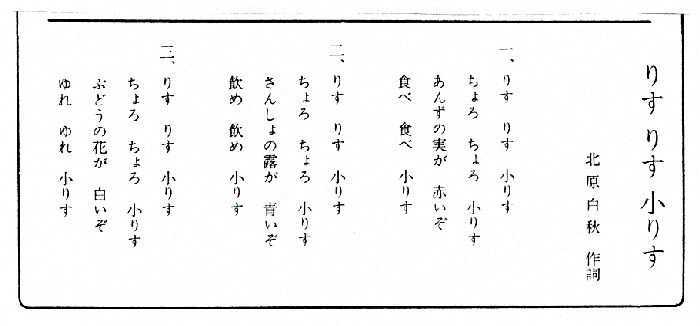 りす りす 小りす
北原白秋 作詞
一、りす りす 小りす
ちょろ ちょろ 小りす
あんずの実が 赤いぞ
食べ 食べ 小りす
二、りす りす 小りす
ちょろ ちょろ 小りす
さんしょの露が 青いぞ
飲め 飲め 小りす
三、りす りす 小りす
ちょろ ちょろ 小りす
ぶどうの花が 白いぞ
ゆれ ゆれ 小りす